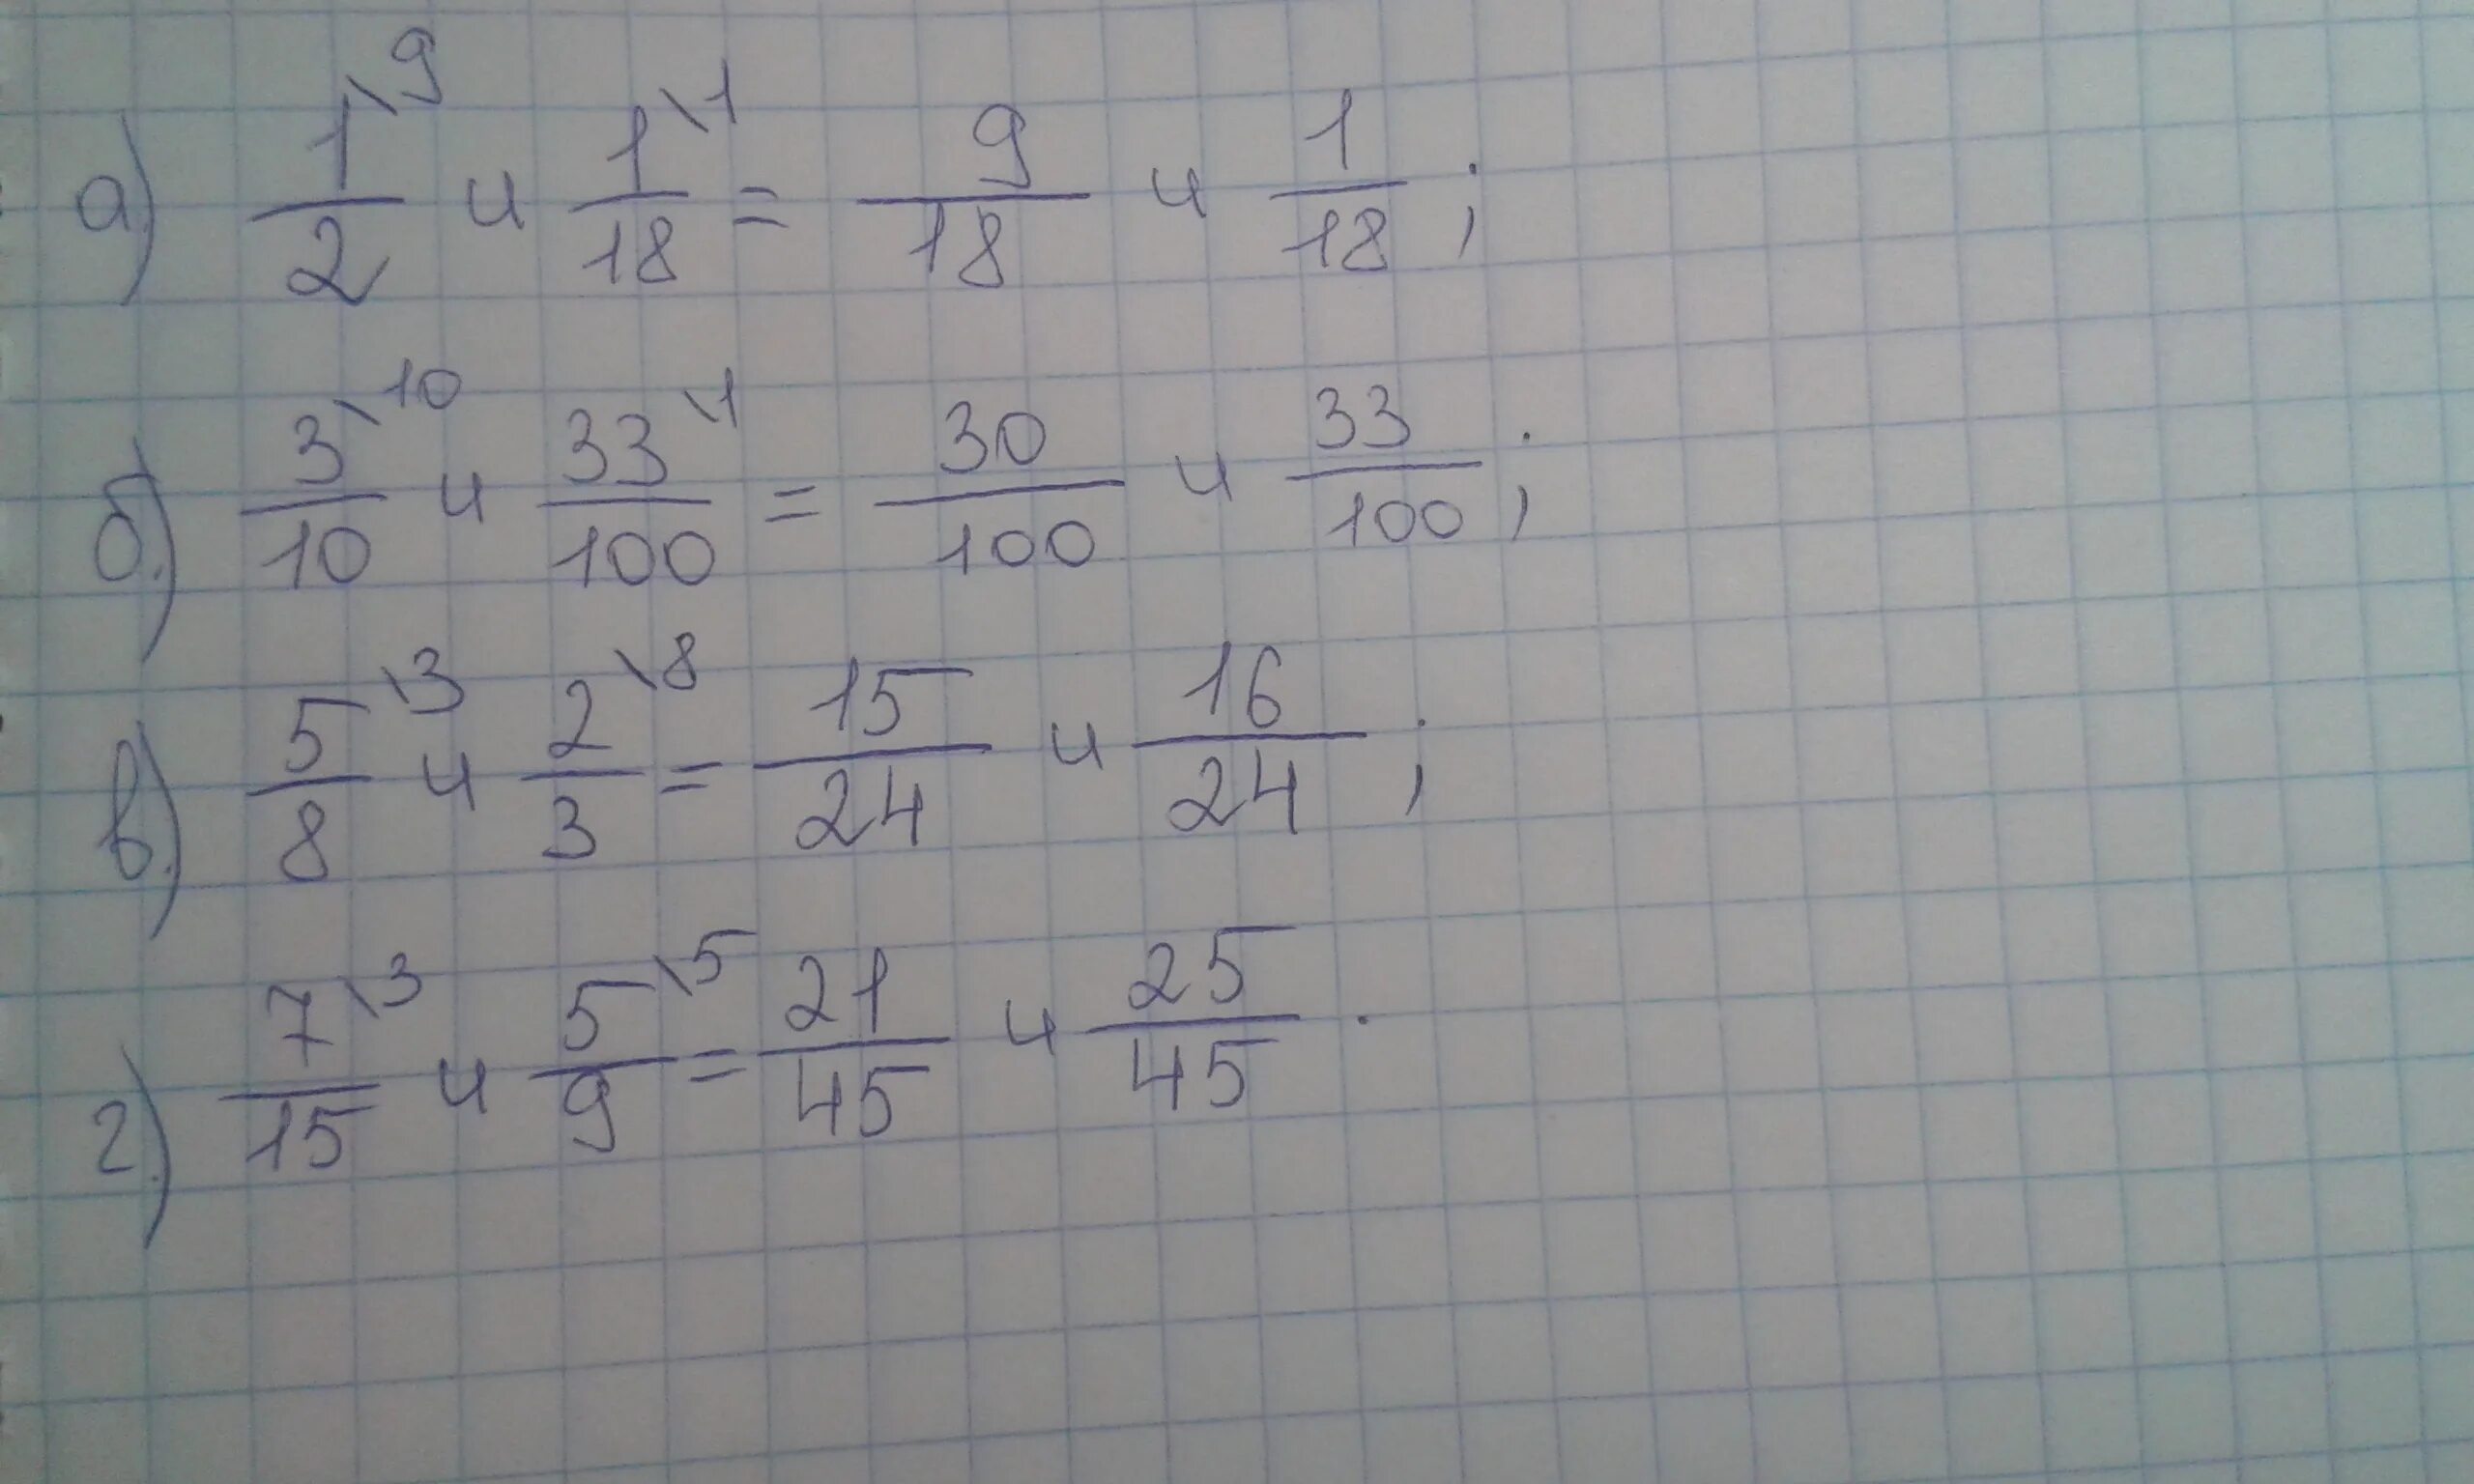 а) 1/2 \9 и 1/18 \1 = 9/18 и 1/18 ;
б) 3/10 \10 и 33/100 \1 = 30/100 и 33/100 ;
в) 5/8 \3 и 2/3 \8 = 15/24 и 16/24 ;
г) 7/15 \3 и 5/9 \5 = 21/45 и 25/45 .